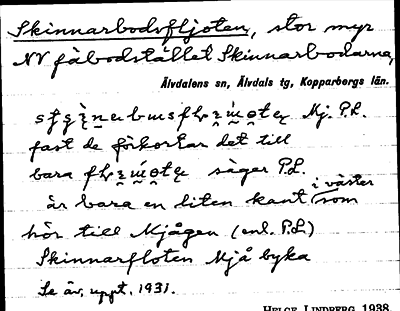 Skinnarbodsfljoten, stor myr
NV fäbodstället Skinnarbodarna,
Älvdalens sn, Älvdals tg, Kopparbergs län.
Mj. P.L.
fast de förkortar det till
bara säger P.L.
är bara en liten kant i väster som
hör till Mjågen (enl. P.L.)
Skinnarfloten Mjå byka
Se äv. uppt. 1931.
HELGE LINDBERG 1938.